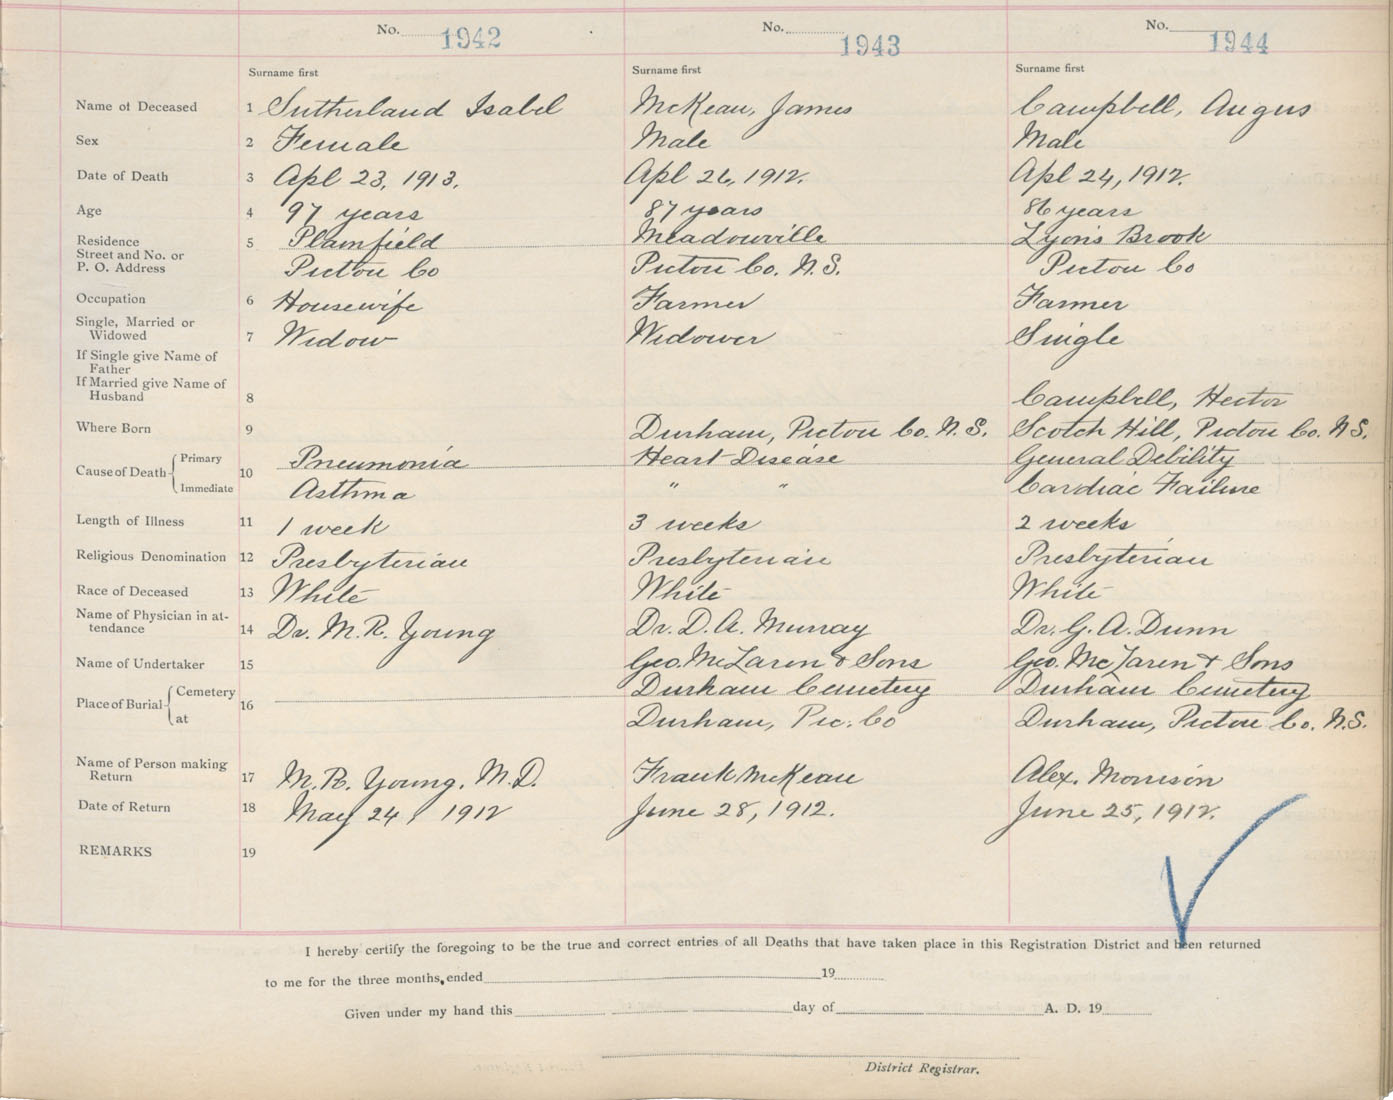 No. 1942 No. 1943 No. 1944
Surname first Surname first Surname first
Name of Deceased 1 Sutherland Isabel McKean, James Campbell, Angus
Sex 2 Female Male Male
Date of Death 3 Apl 23, 1913. Apl 26, 1912. Apl 24, 1912.
Age 4 97 years 87 years 86 years
Residence 5 Plainfield Meadowville Lyons Brook
Street and No. or
P. O. Address Pictou Co Pictou Co. N.S. Pictou Co
Occupation 6 Housewife Farmer Farmer
Single, Married or
Widowed 7 Widow Widower Single
If Single give Name of
Father
If Married give Name of
Husband 8 Campbell, Hector
Where Born 9 Durham, Pictou Co. N.S. Scotch Hill, Pictou Co. N.S.
Cause of Death 10 Primary Pneumonia Heart Disease General Debility
Immediate Asthma " " Cardiac Failure
Length of Illness 11 1 week 3 weeks 2 weeks
Religious Denomination 12 Presbyterian Presbyterian Presbyterian
Race of Deceased 13 White White White
Name of Physician in at-
tendance 14 Dr. M. R. Young Dr. D. A. Murray Dr. G. A. Dunn
Name of Undertaker 15 Geo. McLaren & Sons Geo. McLaren & Sons
Place of Burial 16 Cemetery Durham Cemetery Durham Cemetery
at Durham, Pic. Co Durham, Pictou Co. N.S.
Name of Person making
Return 17 M. R. Young, M.D. Frank McKean Alex. Morrison
Date of Return 18 May 24, 1912 June 28, 1912. June 25, 1912.
REMARKS 19
I hereby certify the foregoing to be the true and correct entries of all Deaths that have taken place in this Registration District and been returned
to me for the three months, ended 19
Given under my hand this day of A. D. 19
District Registrar.